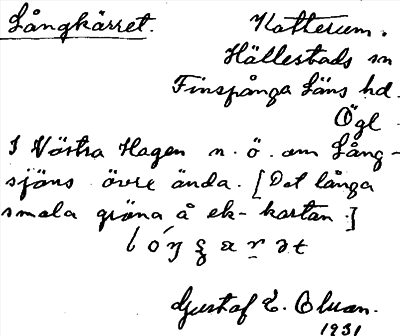 Långkärret.
Katterum.
Hällestads sn
Finspånga läns hd.
Ögl.
I Västra Hagen n. ö. om Lång-
sjöns övre ända. [Det långa
smala gröna å ek-kartan.]
Gustaf E. Olson.
1931